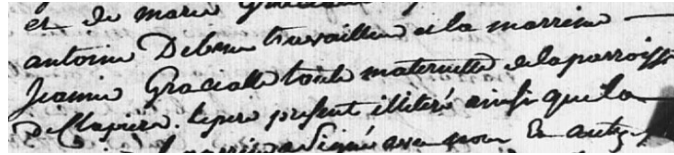 et de marie
antoine Debru travailleur et la marreine
Jeanne Gracialle tante maternelle de la parroisse
De Clapier, le pere present illiteré ainsi que la
signé avec nous